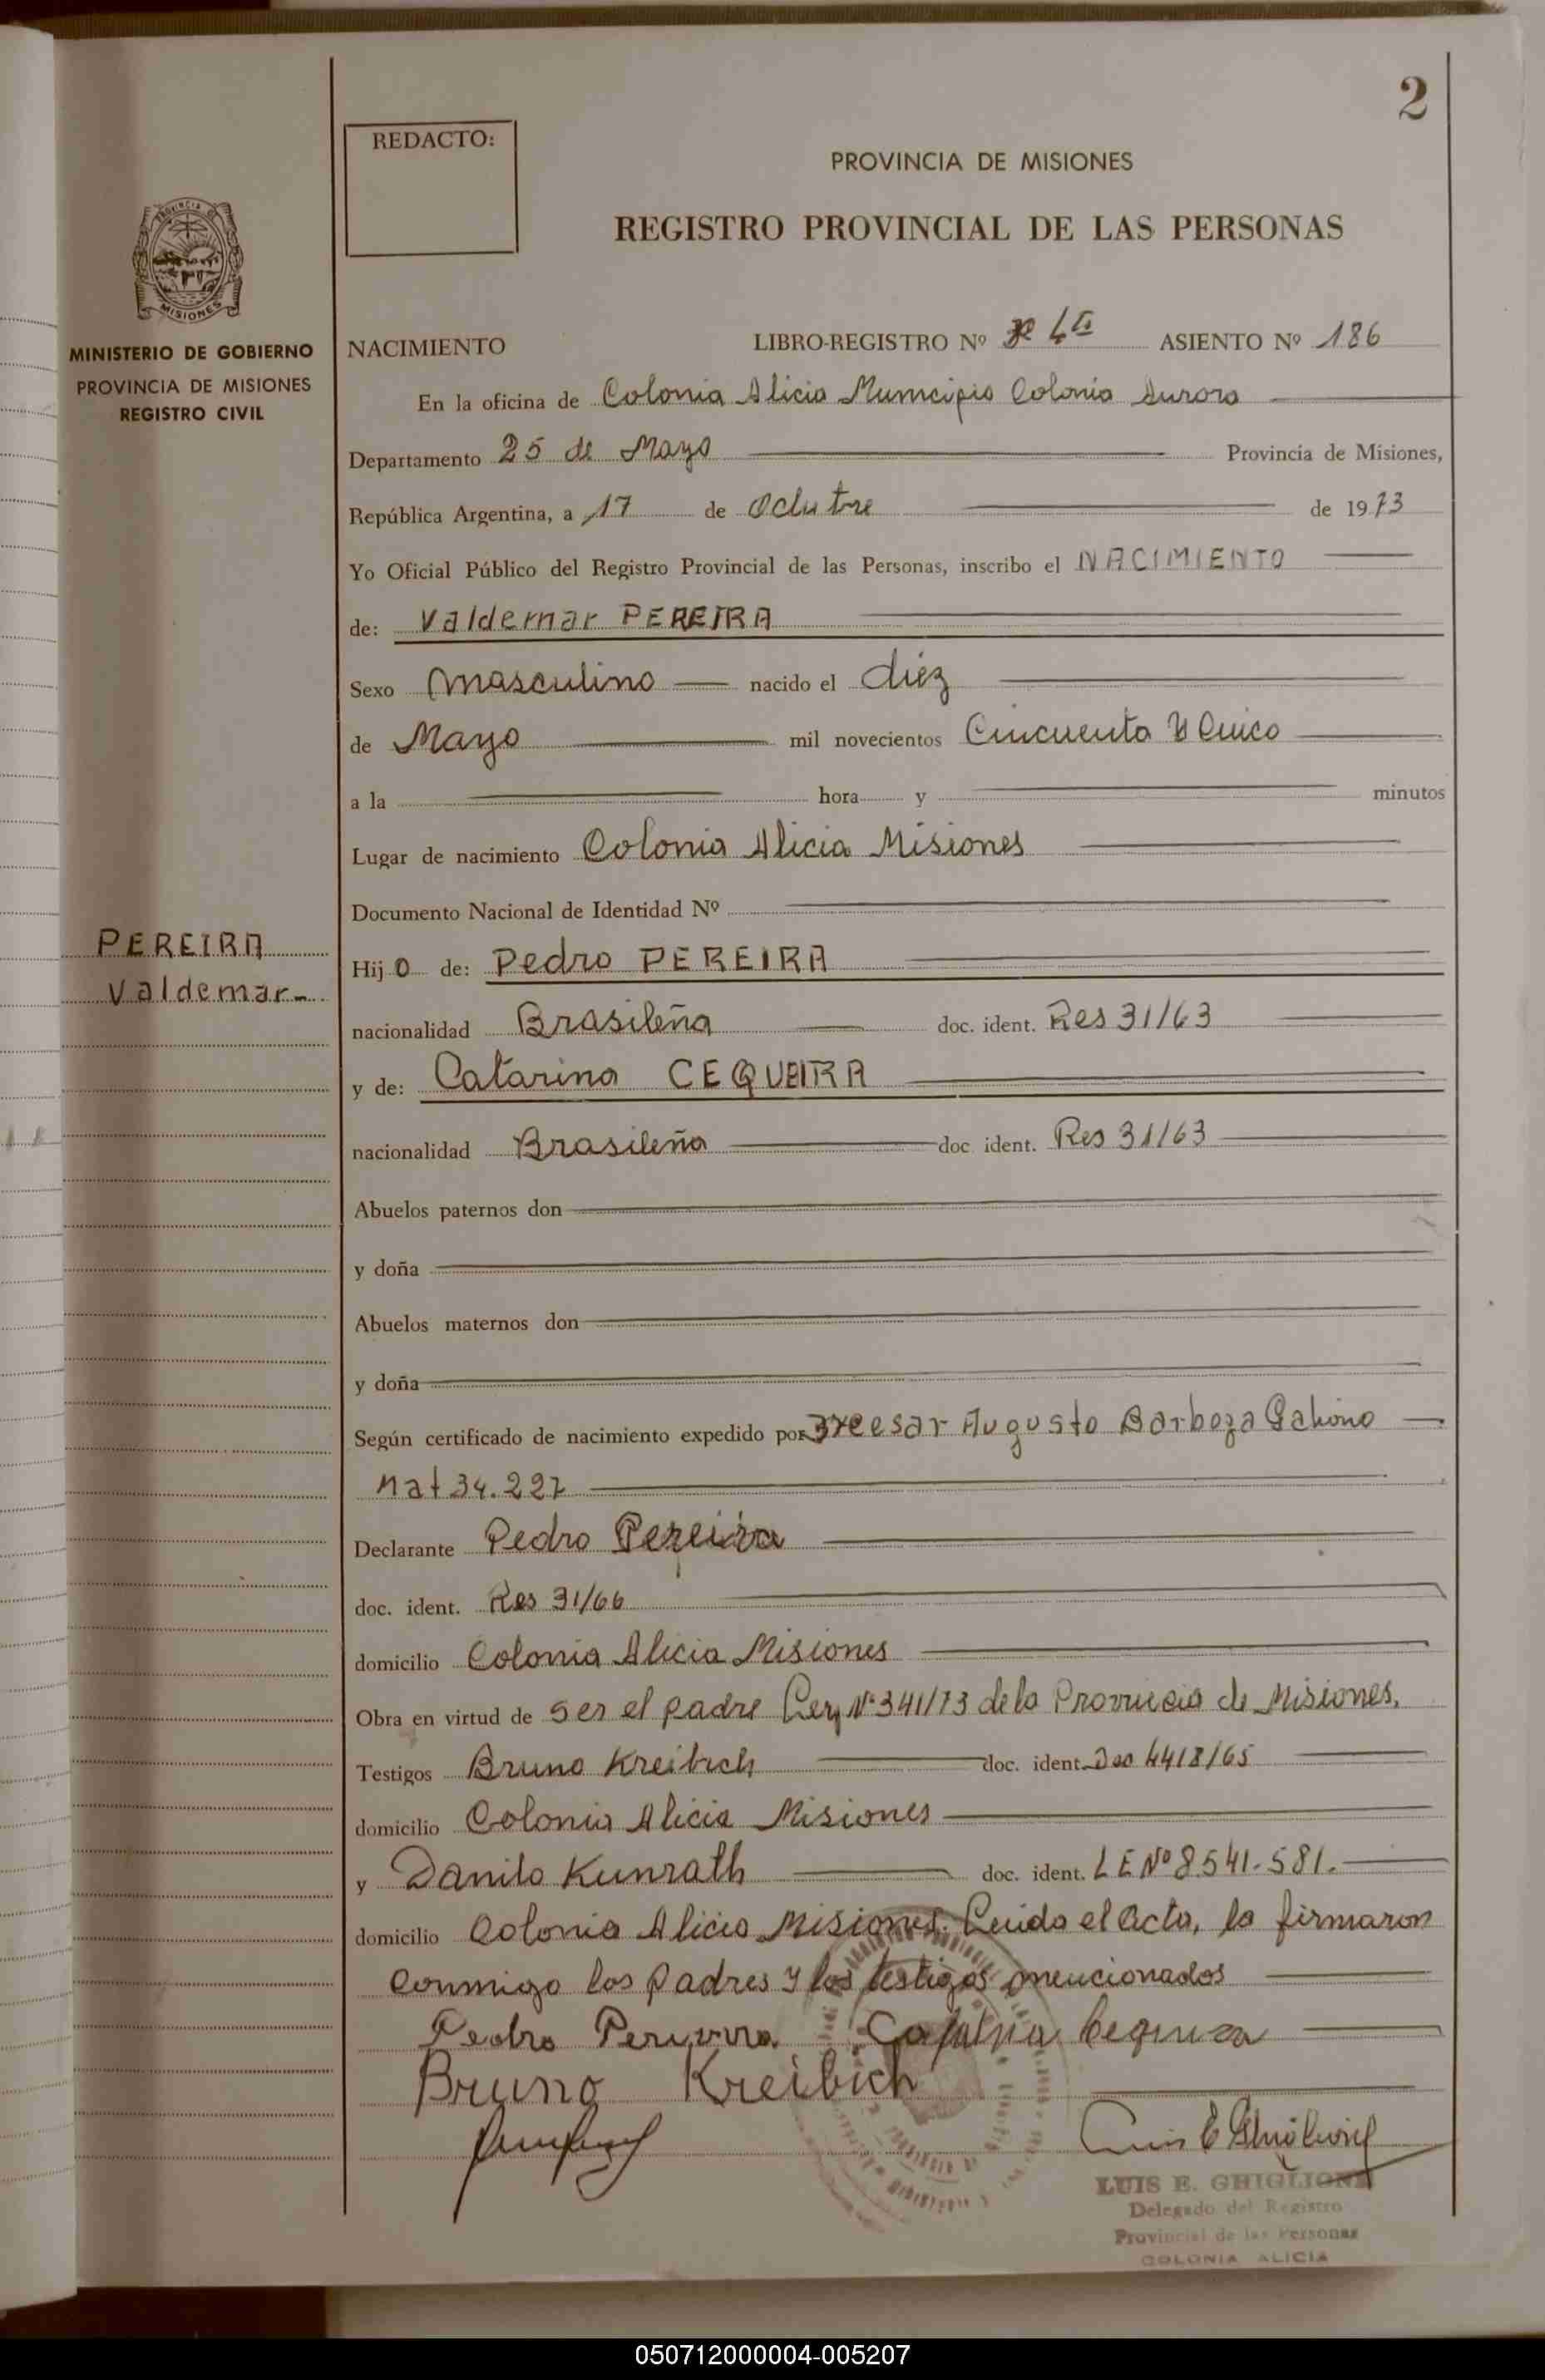 2
REDACTO:
PROVINCIA DE MISIONES
REGISTRO PROVINCIAL DE LAS PERSONAS
PROVINCIA DE
MISIONES
MINISTERIO DE GOBIERNO
PROVINCIA DE MISIONES
REGISTRO CIVIL
NACIMIENTO LIBRO-REGISTRO Nº ASIENTO Nº 186
En la oficina de Colonia Alicia Municipio Colonia Aurora
Departamento 25 de Mayo Provincia de Misiones,
República Argentina, a 17 de Octubre de 1973
Yo Oficial Público del Registro Provincial de las Personas, inscribo el NACIMIENTO
de: Valdemar PEREIRA
Sexo masculino nacido el diéz
de Mayo mil novecientos Cincuenta y Cinco
a la hora y minutos
Lugar de nacimiento Colonia Alicia Misiones
Documento Nacional de Identidad Nº
PEREIRA
Valdemar
Hij o de: Pedro PEREIRA
nacionalidad Brasileña doc. ident. Res 31/63
y de: Catarina CEQUEIRA
nacionalidad Brasileña doc ident. Res 31/63
Abuelos paternos don
y doña
Abuelos maternos don
y doña
Según certificado de nacimiento expedido por Cesar Augusto Barboza
Mat 34.227
Declarante Pedro Pereira
doc. ident. Res 31/66
domicilio Colonia Alicia Misiones
Obra en virtud de ser el padre Ley Nº 341/73 de la Provincia de Misiones.
Testigos Bruno Kreibich doc. ident. 4418/65
domicilio Colonia Alicia Misiones
y Danilo Kunrath doc. ident. LE Nº 8541.581.
domicilio Colonia Alicia Misiones. Leida el Acta, la firmaron
conmigo los padres y los testigos mencionados
Pedro
Bruno Kreibich
LUIS E. GHIGLIONE
Delegado del Registro
Provincial de las Personas
COLONIA ALICIA
050712000004-005207